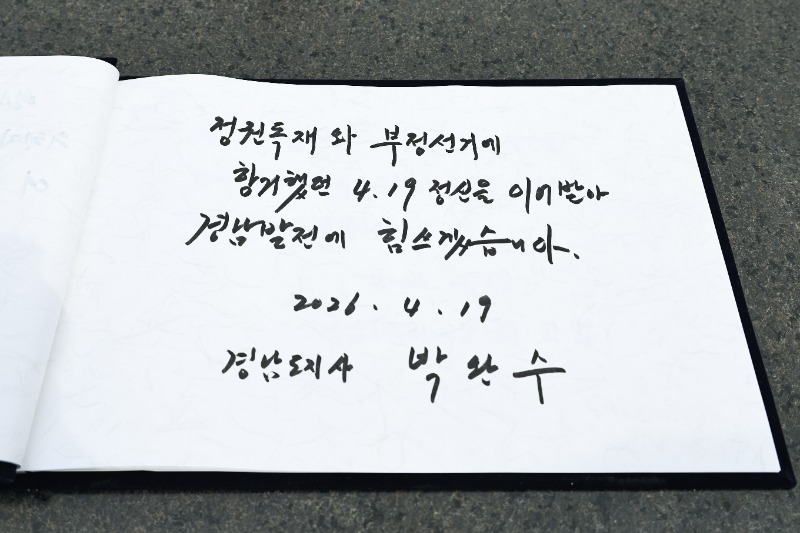 정권독재 와 부정선거에
항거했던 4.19 정신을 이어받아
경남발전에 힘쓰겠습니다.
2026. 4. 19
경남도지사 박완수